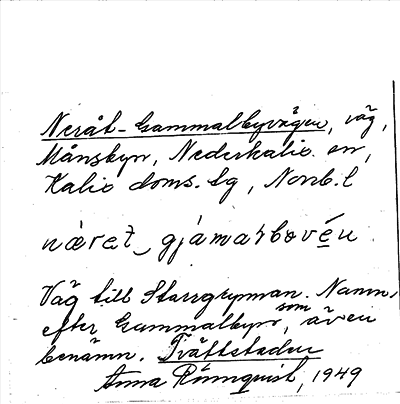 Neråt-Gammalbyvägen, väg,
Månsbyn, Nederkalix sn,
Kalix doms. lg, Norrb. l
nàret gjámaɤbovén
Väg till Storrgrynnan. Namn
efter Gammalbyn, som även
benämn. Tvättstaden
Anna Rönnquist, 1949